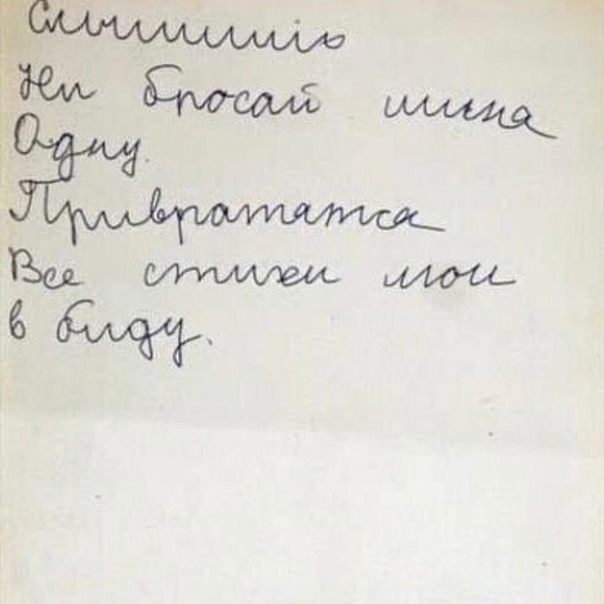 Слышишь
Ни бросай миня
Одну.
Привратятса
Все стихи мои
в биду.